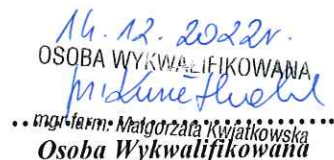 14. 12. 2022r.
OSOBA WYKWALIFIKOWANA
mgr farm. Małgorzata Kwjatkowska
Osoba Wykwalifikowana